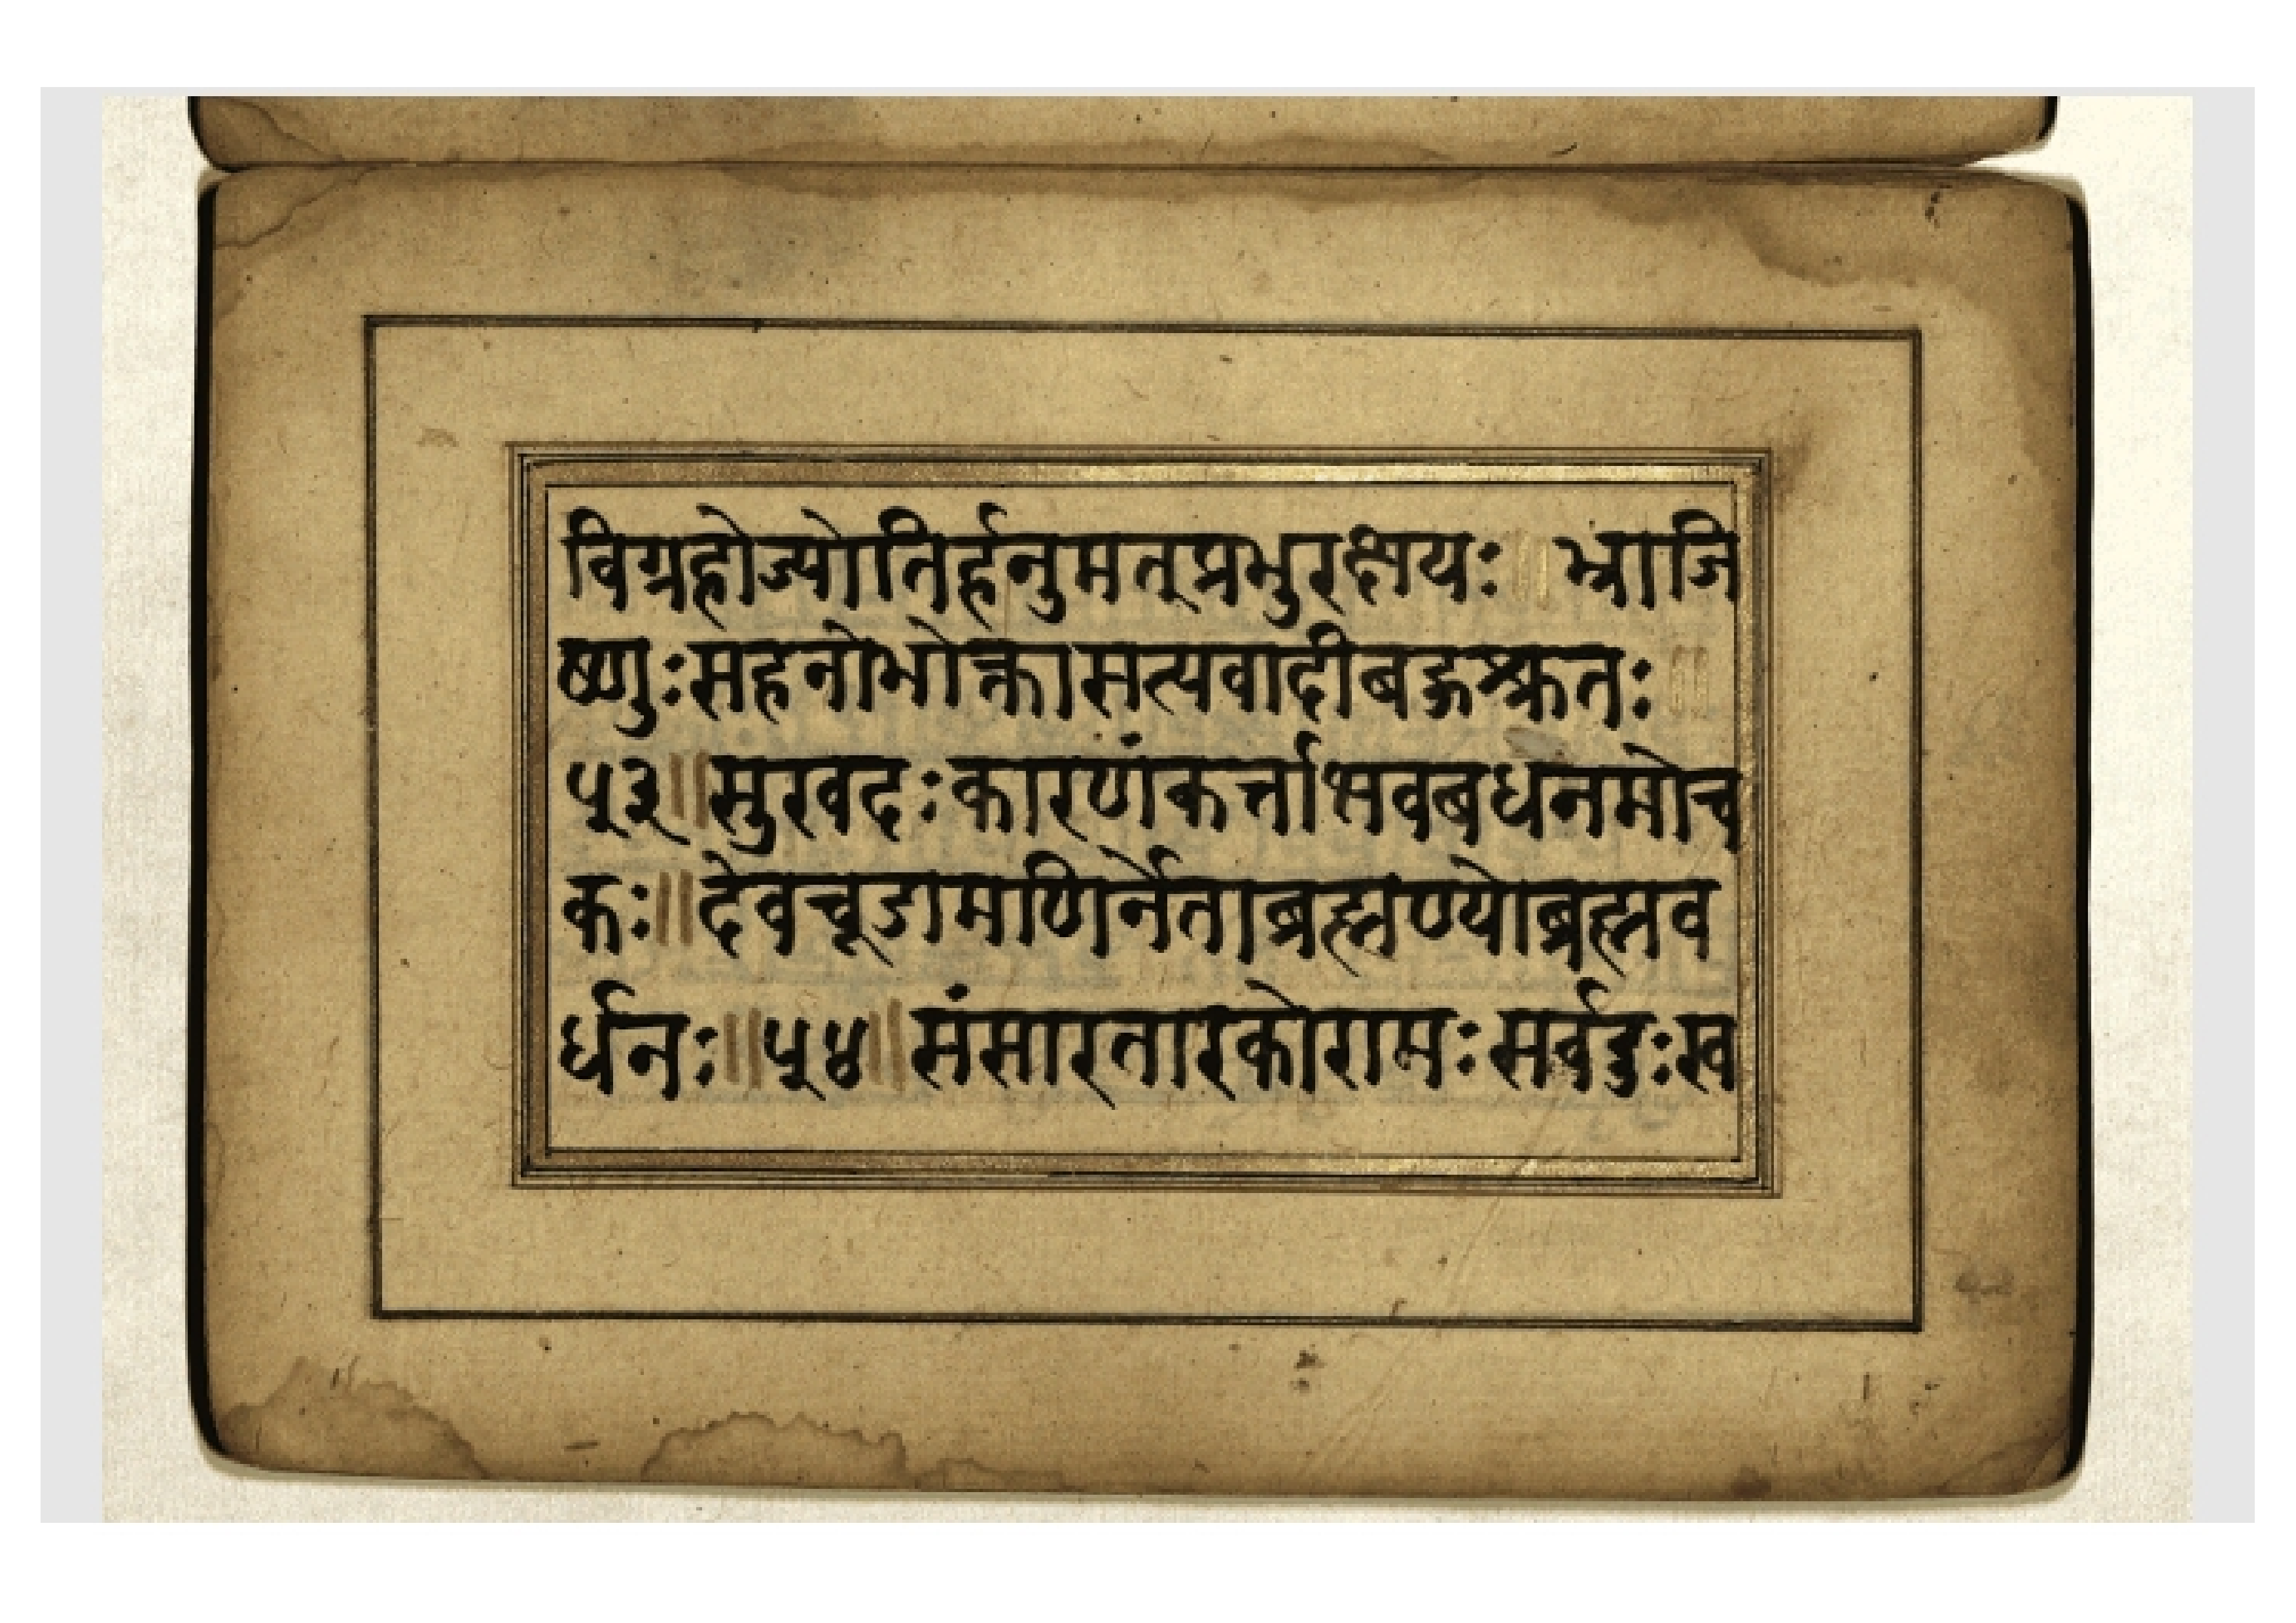 विग्रहोज्योतिर्हनुमत्प्रभुरक्षयः ॥ भ्राजि
ष्णुःसहनोभोक्तासत्यवादीबहुश्रुतः ॥
५३॥सुखदःकारणंकर्त्ताभवबधनमोच
कः॥देवचूडामणिर्नेताब्रह्मण्योब्रह्मव
र्धनः॥५४॥संसारतारकोरामःसर्वदुःख